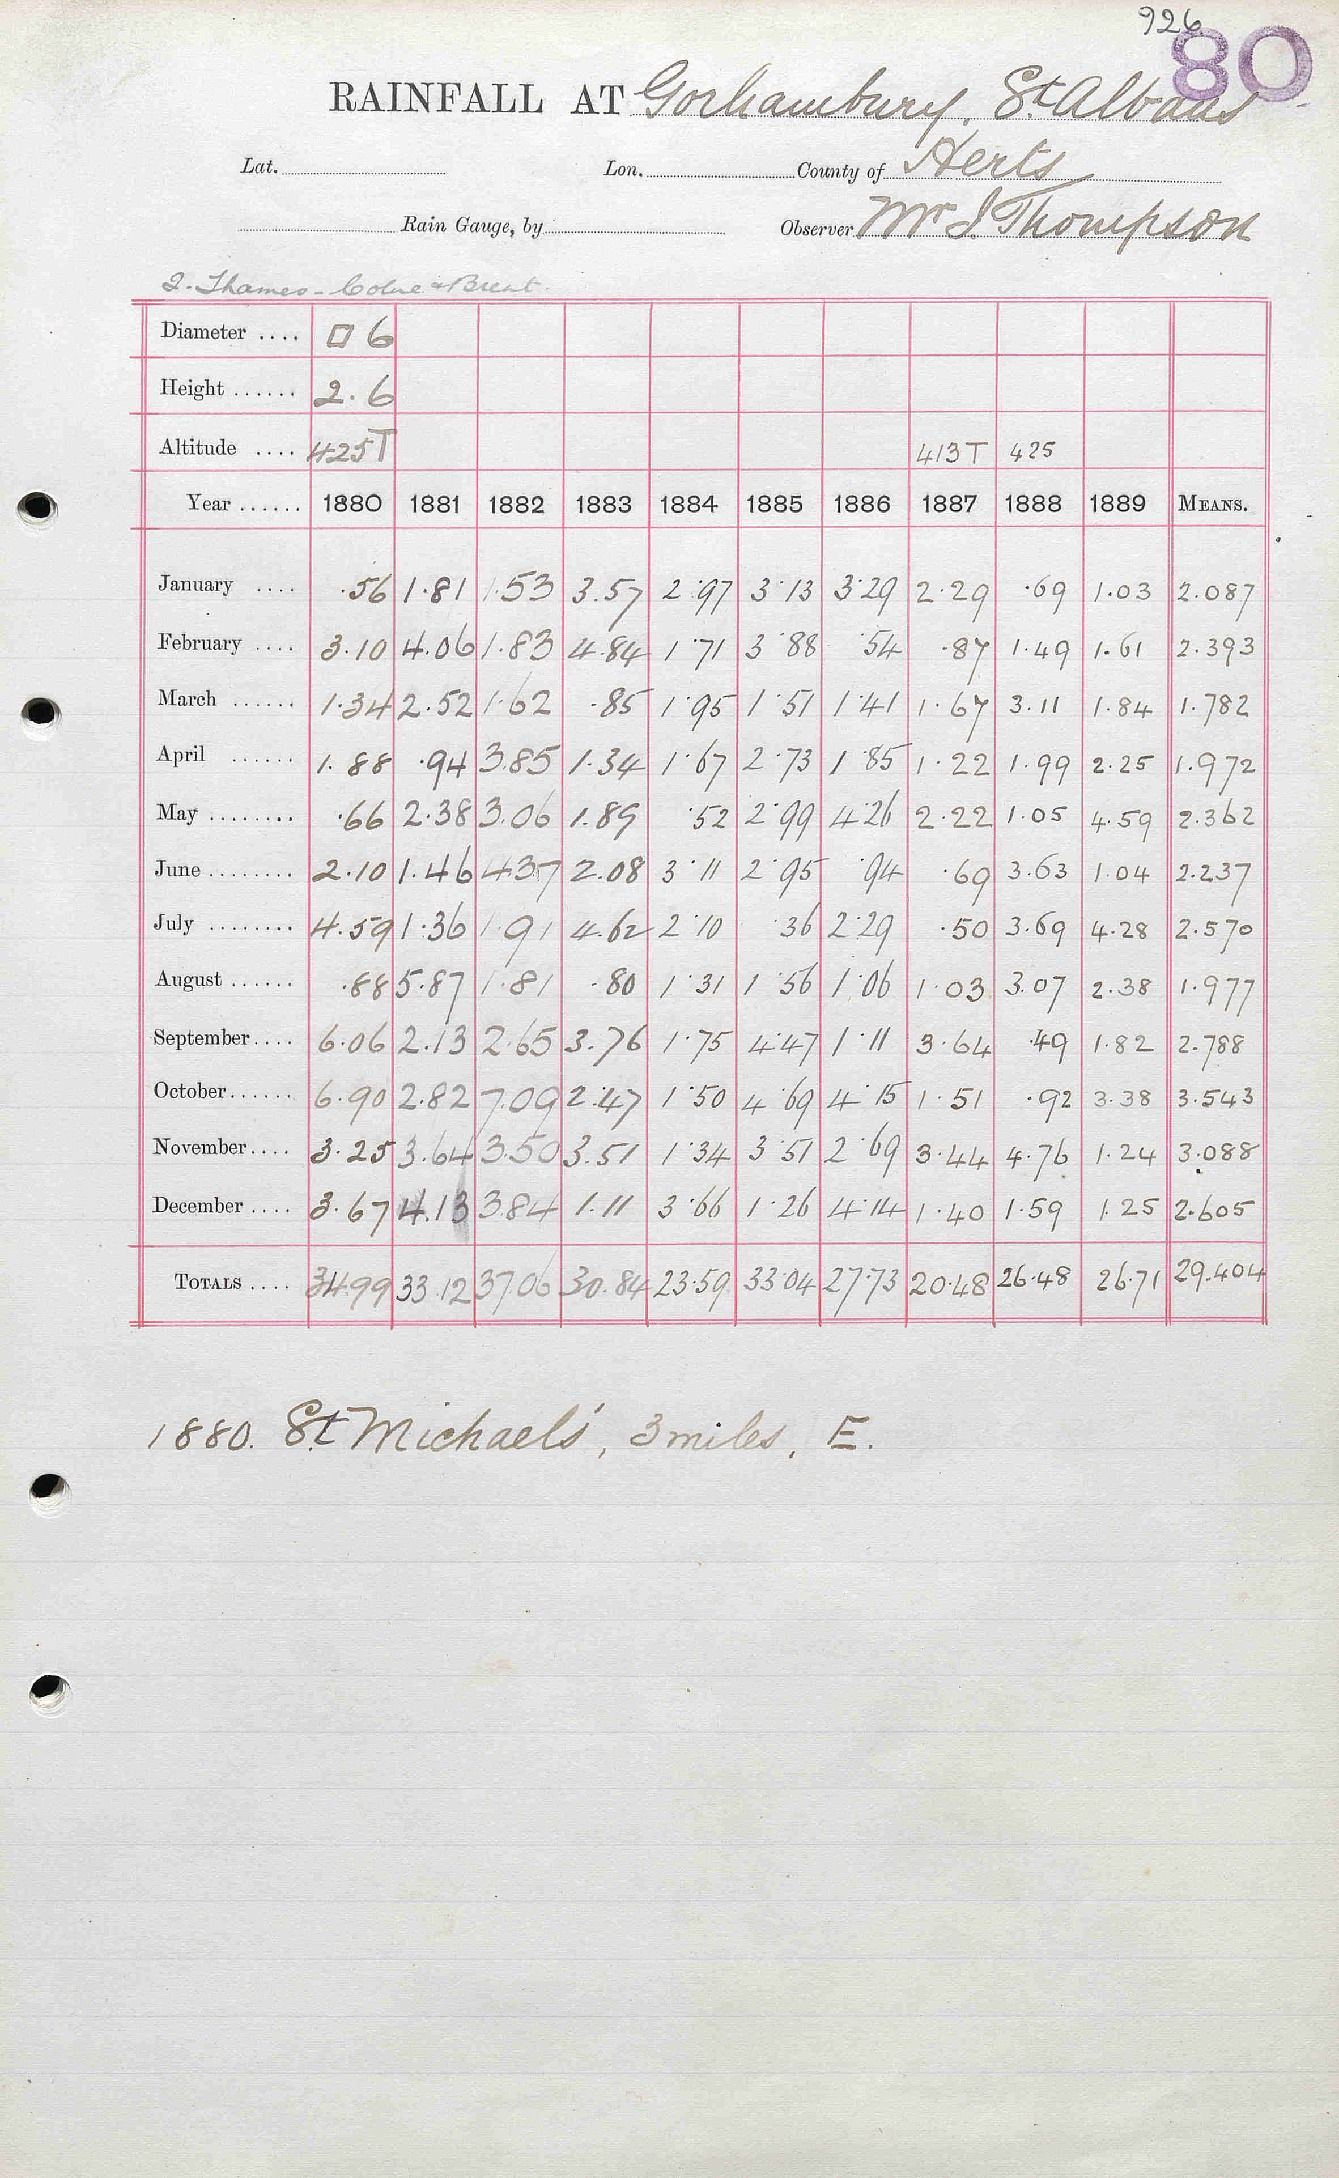 926
80
RAINFALL AT Gorhambury, St Albans
Lat. Lon. County of Herts
Rain Gauge, by Observer Mr J Thompson
2. Thames - Colne & Brent
Diameter .... □ 6
Height ...... 2.6
Altitude .... 425T 413T 425
Year ...... 1880 1881 1882 1883 1884 1885 1886 1887 1888 1889 MEANS.
January .... .56 1.81 1.53 3.57 2.97 3.13 3.29 2.29 .69 1.03 2.087
February .... 3.10 4.06 1.83 4.84 1.71 3.88 .54 .87 1.49 1.61 2.393
March ...... 1.34 2.52 1.62 .85 1.95 1.51 1.41 1.67 3.11 1.84 1.782
April ...... 1.88 .94 3.85 1.34 1.67 2.73 1.85 1.22 1.99 2.25 1.972
May ........ .66 2.38 3.06 1.89 .52 2.99 4.26 2.22 1.05 4.59 2.362
June ........ 2.10 1.46 4.37 2.08 3.11 2.95 .94 .69 3.63 1.04 2.237
July ........ 4.59 1.36 1.91 4.62 2.10 .36 2.29 .50 3.69 4.28 2.570
August ...... .88 5.87 1.81 .80 1.31 1.56 1.06 1.03 3.07 2.38 1.977
September .... 6.06 2.13 2.65 3.76 1.75 4.47 1.11 3.64 .49 1.82 2.788
October ...... 6.90 2.82 7.09 2.47 1.50 4.69 4.15 1.51 .92 3.38 3.543
November .... 3.25 3.64 3.50 3.51 1.34 3.51 2.69 3.44 4.76 1.24 3.088
December .... 3.67 4.13 3.84 1.11 3.66 1.26 4.14 1.40 1.59 1.25 2.605
TOTALS .... 34.99 33.12 37.06 30.84 23.59 33.04 27.73 20.48 26.48 26.71 29.404
1880. St Michael's, 3 miles, E.